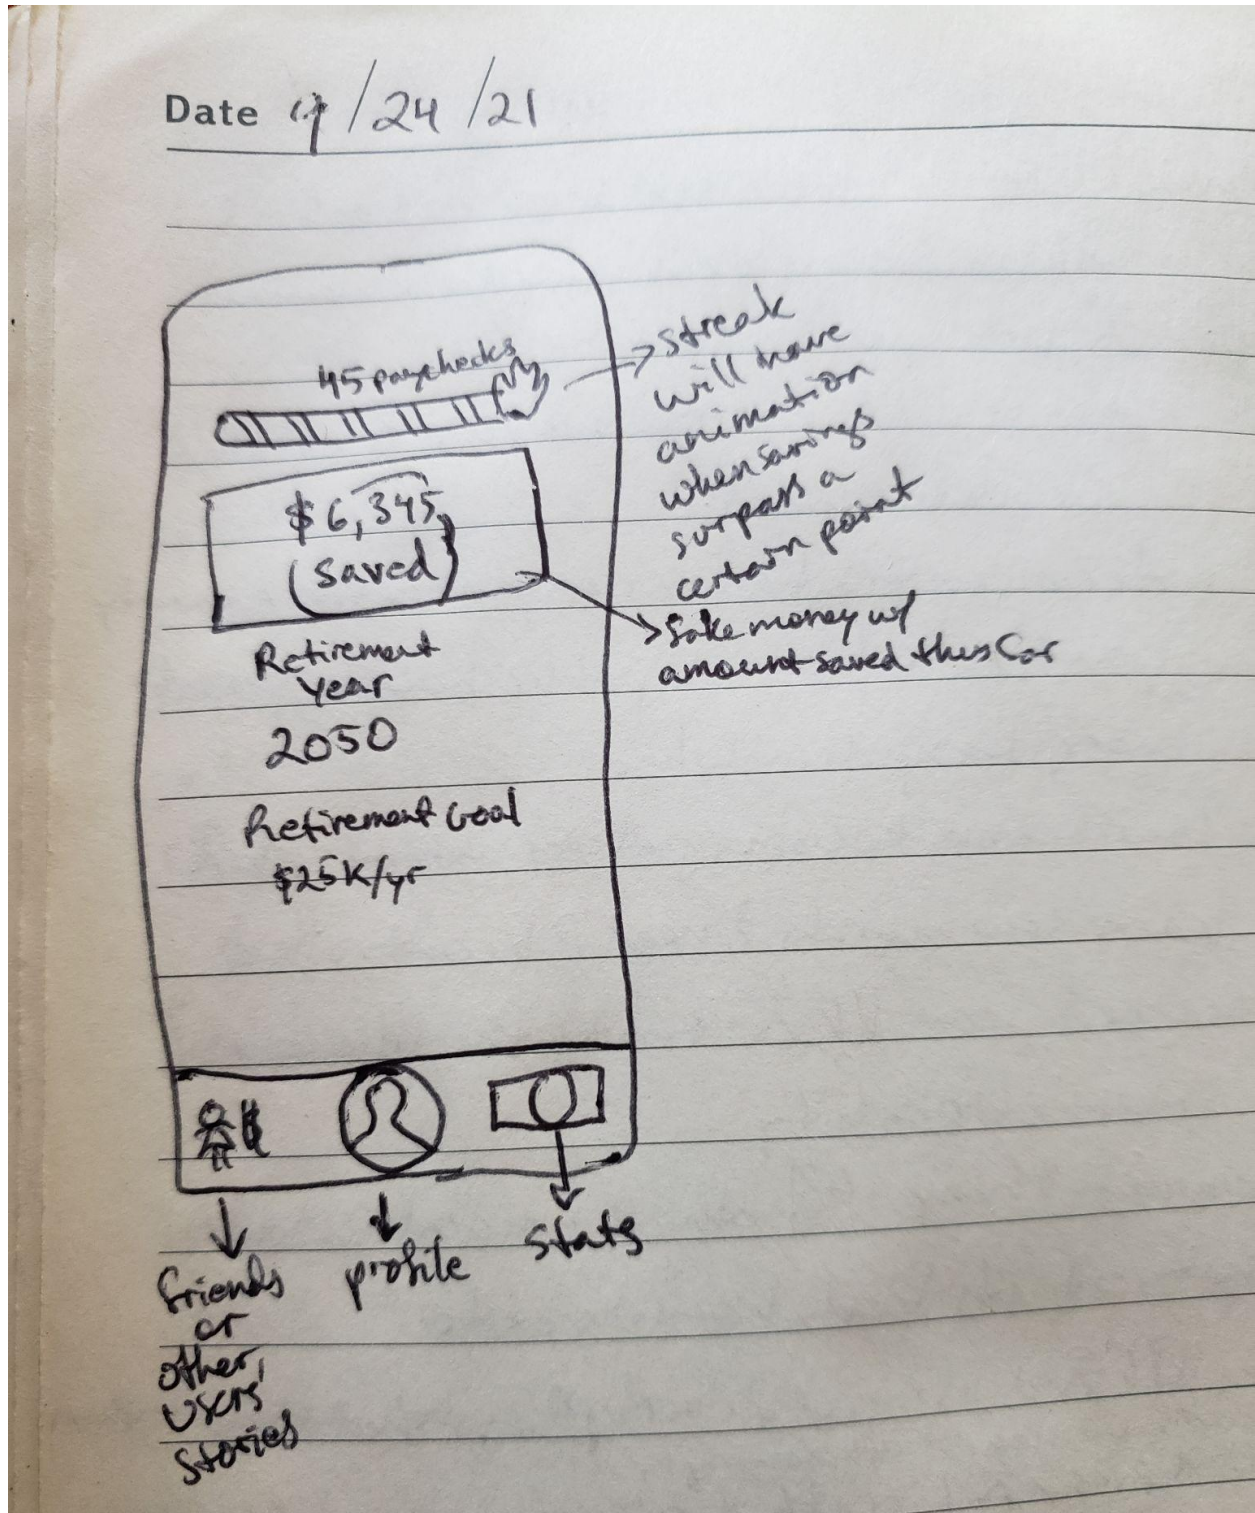 Date 9/24/21
45 paychecks
$6,345
(saved)
Retirement
Year
2050
Retirement Goal
$25K/yr
streak
will have
animation
when savings
surpass a
certain point
fake money w/
amount saved thus far
friends
or
other
users'
stories
profile
stats